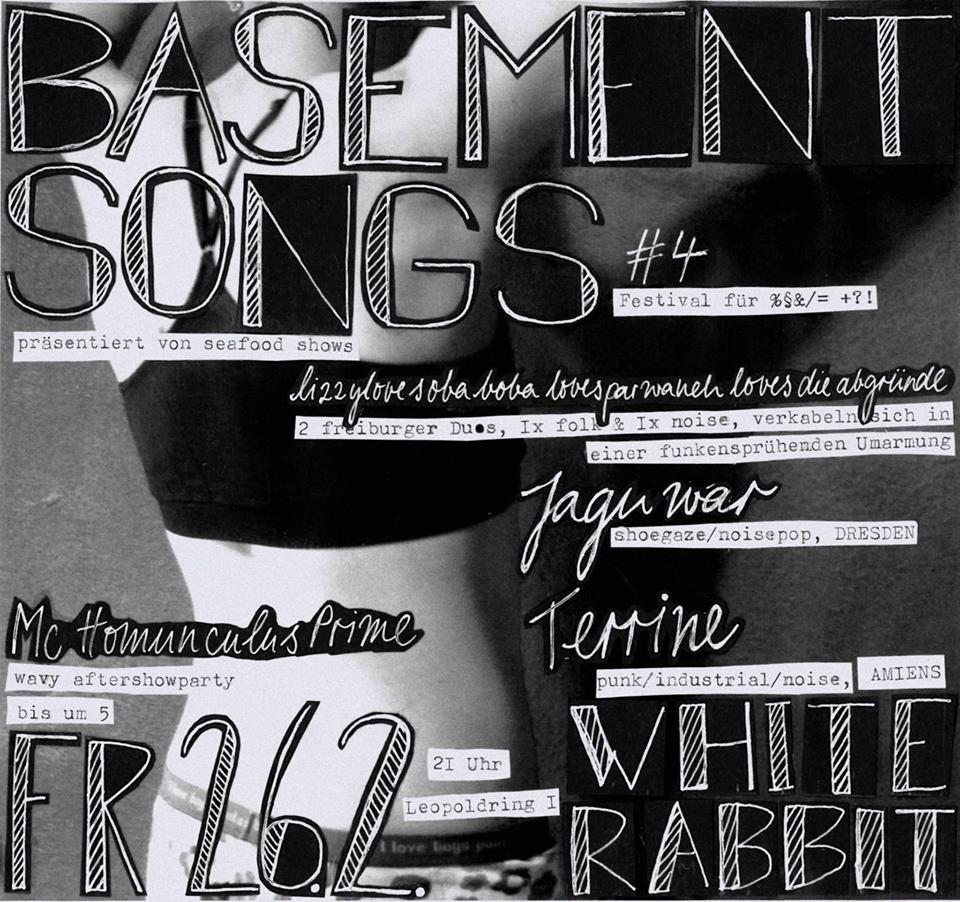 BASEMENT
SONGS
#4
Festival für %§&/= +?!
präsentiert von seafood shows
lizzylovesoba boba lovesparwaneh loves die abgründe
2 freiburger Duos, Ix folk & Ix noise, verkabeln sich in
einer funkensprühenden Umarmung
Jaguwar
shoegaze/noisepop, DRESDEN
Mc Homunculus Prime
wavy aftershowparty
bis um 5
Terrine
punk/industrial/noise, AMIENS
FR 26.2.
21 Uhr
Leopoldring I
WHITE
RABBIT
I love boys